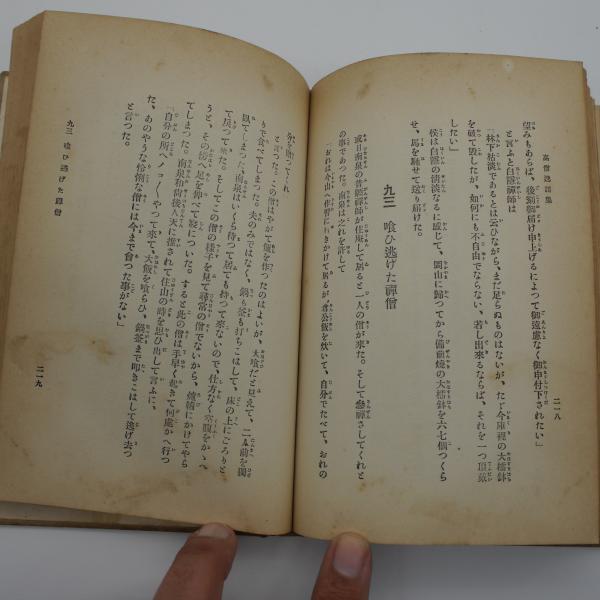 高僧逸話集
二一八
望みもあらば、後刻御届け申上げるによつて御遠慮なく御申付下されたい」
と言ふと白隱禪師は
「林下枯淡であるとは云ひながら、まだ足らぬものはないが、たゞ今庫裡の大擂鉢
を破て毀したが、如何にも不自由でならない、若し出來るならば、それを一つ頂戴
したい」
侯は白隱の淸淡なるに感じて、岡山に歸つてから備前燒の大擂鉢を六七個つくら
せ、馬を馳せて送り届けた。
九三 喰ひ逃げた禪僧
或日南泉の普願禪師が住庵して居ると一人の僧が來た。そして參禪させてくれと
の事であつた。南泉は之れを許して
「おれは今山へ作務に行きかけて居るが、君公飯を炊いて、自分でたべて、おれの
分を贈つてくれ
と言つた。この僧はやがて飯を作つたのはよいが、大喰だと見えて、二人前を獨
りで食べてしまつた。夫のみではなく、鍋も釜も打ちこはして、床の上にごろりと
臥てしまつた、南泉はいくら待つて居ても持つて來ないので、仕方なく空腹をかゝへ
て戻つて來た。そしてこの僧の樣子を見て尋常の僧でないから、爐輔にかけてやら
うと、その傍へ足を伸べて寢についた。すると此の僧は手早く起きて何處かへ行つ
てしまつた。南泉和尚後人天に推されて住山の時を思ひ出して言ふに、
「自分の所へノコ〳〵やつて來て、大飯を喰らひ、鍋釜まで叩きこはして逃げ去つ
た、あのやうな怜悧な僧には今まで會つた事がない」
と言つた。
九三 喰ひ逃げた禪僧
二一九